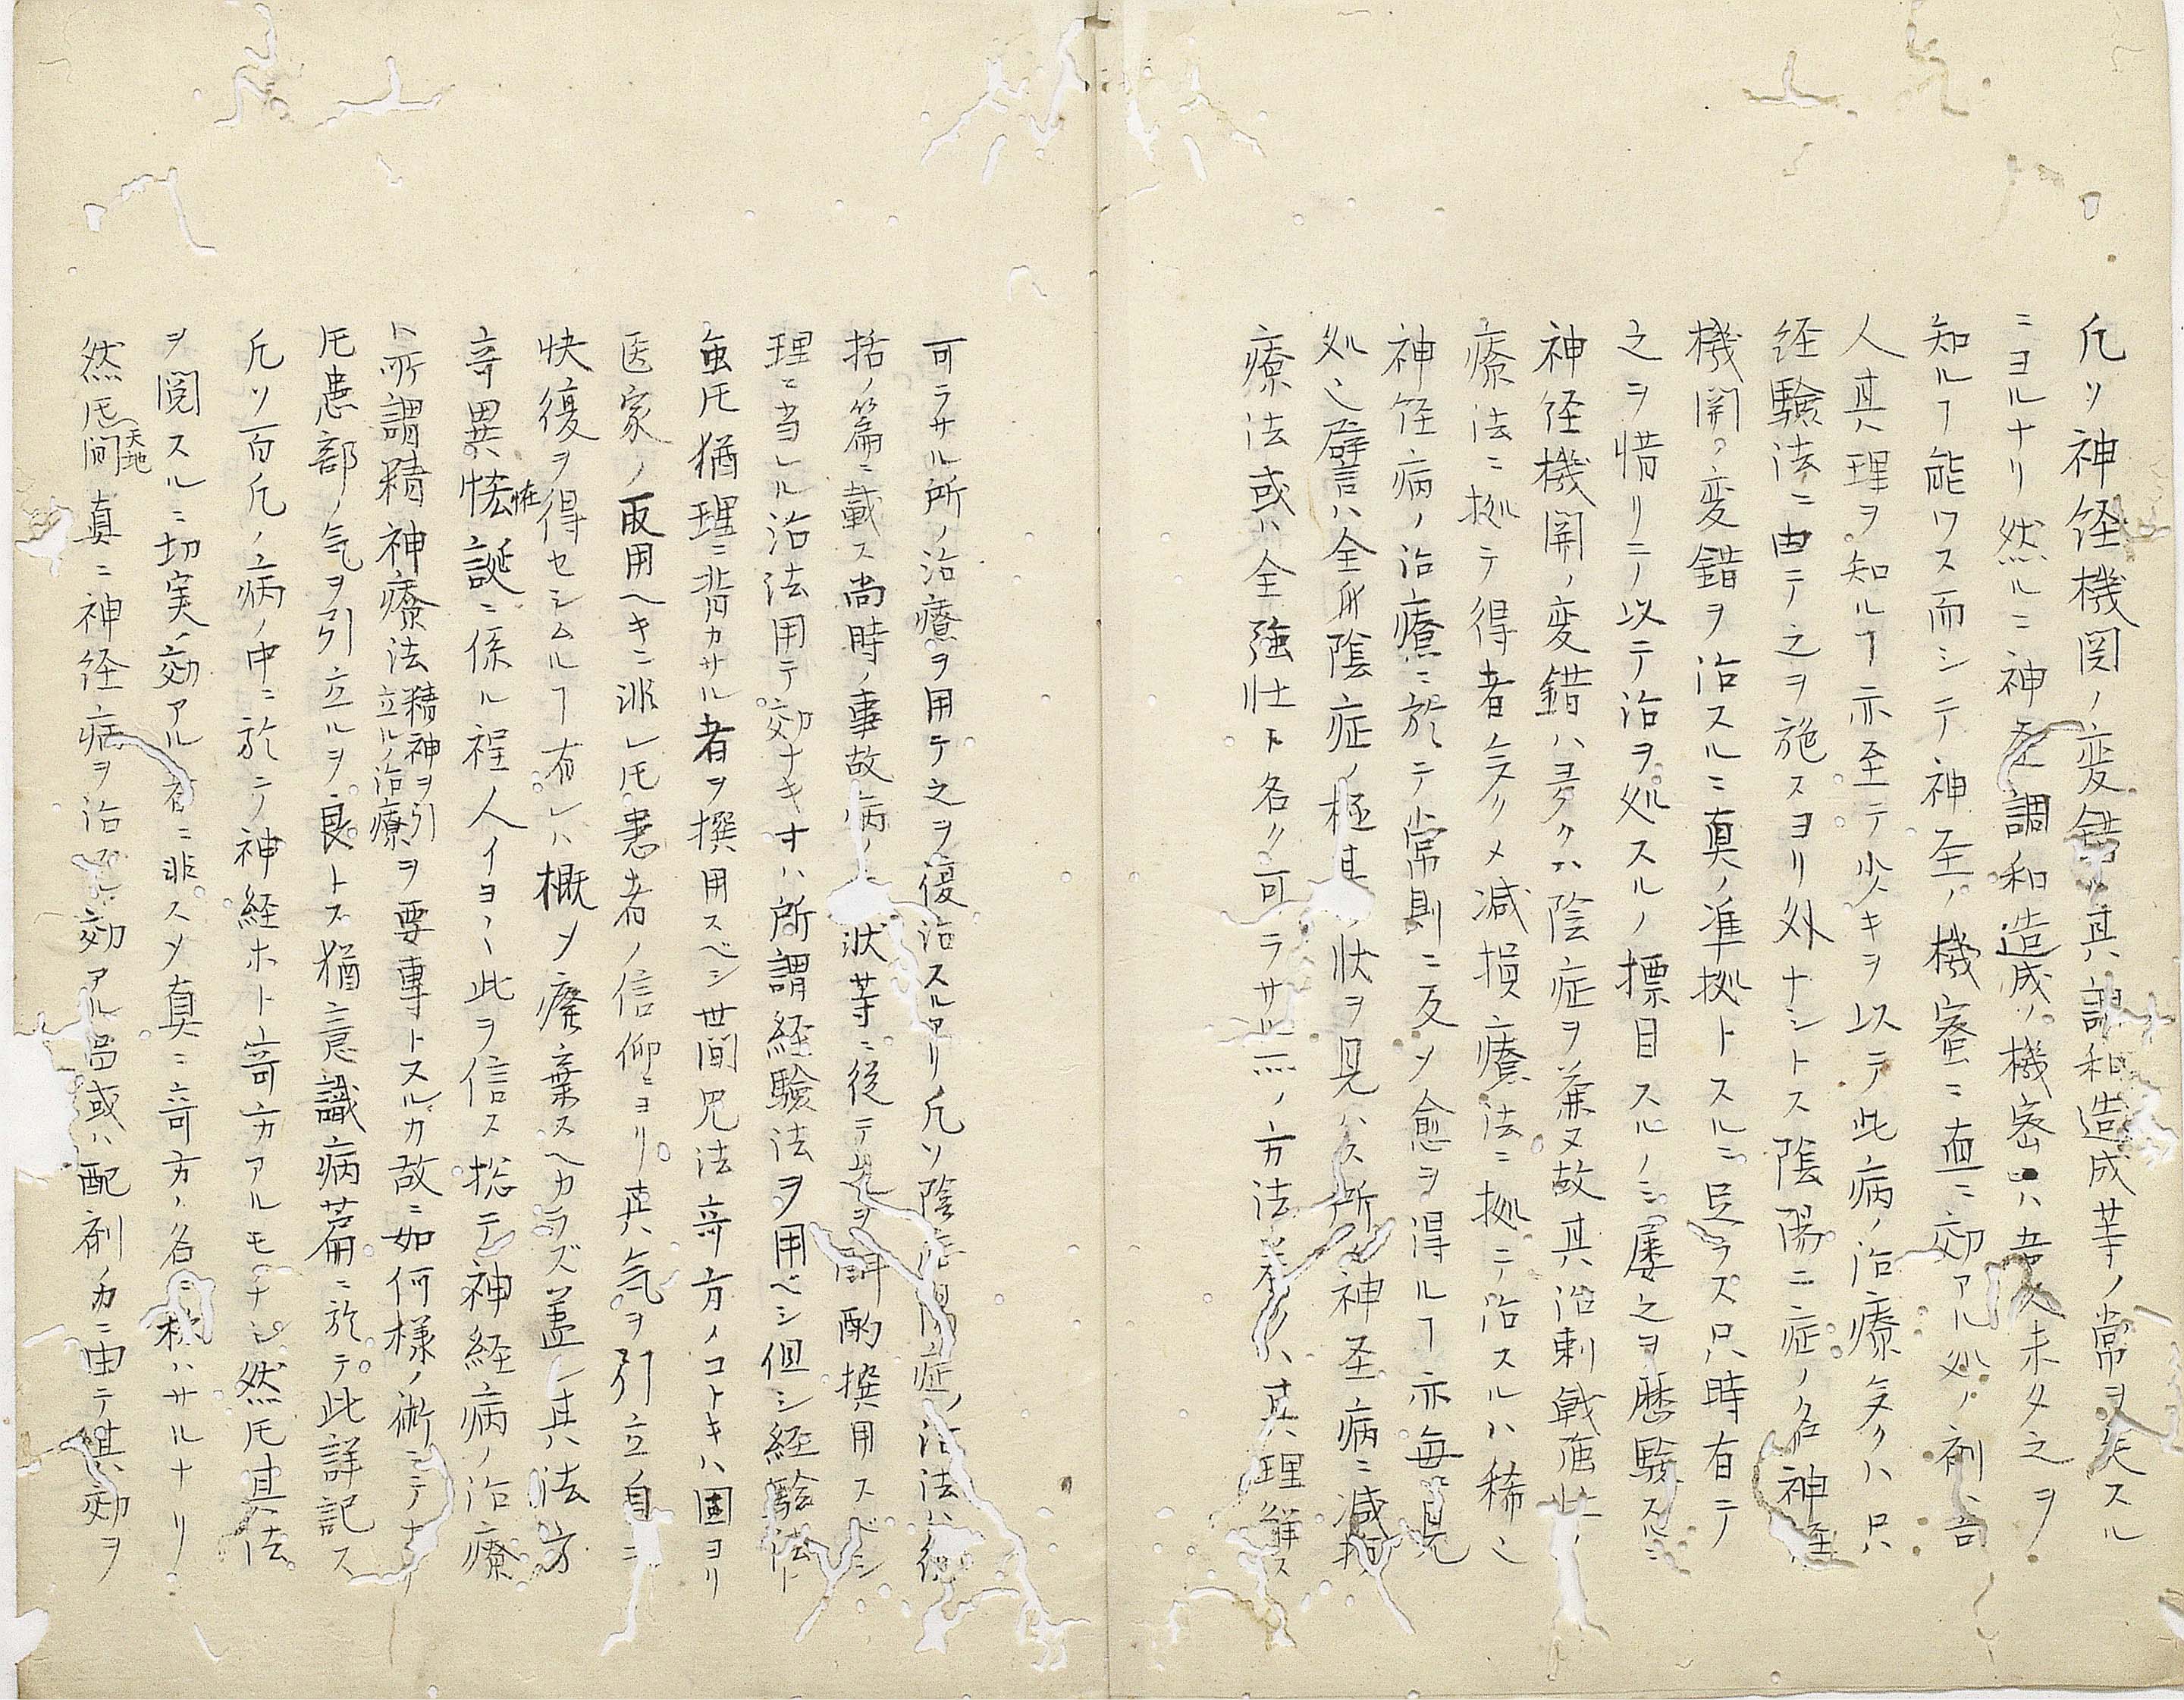 凡ソ神経機関ノ変錯ハ其調和造成等ノ常ヲ失スル
ニヨルナリ然ルニ神至調和造成ノ機密ハ吾人未タ之ヲ
知ルヿ能ワス而シテ神至ノ機密ニ直ニ効アル処ノ剤
人其理ヲ知ルヿ亦至テ少キヲ以テ此病ノ治療多クハ只
経験法ニ由テ之ヲ施スヨリ外ナシトス陰陽ニ症ノ名神経
機関ノ変錯ヲ治スルニ真ノ準拠トスルニ足ラズ只時有テ
之ヲ惜リテ以テ治ヲ処スルノ標目スルノミ屡之ヲ歴験スルニ
神経機関ノ変錯ハ多クハ陰症ヲ兼又故其治刺戟強壮
療法ニ拠テ得者多クメ減損療法ニ拠テ治スルハ稀ニ
神経病ノ治療ニ於テ常則ニ反メ愈ヲ得ルヿ亦毎ニ見
処也譬ハ全所陰症ノ極其状ヲ見ハス所神圣病ニ減損
療法或ハ全強壮ト名ク可ラサル一方法其理解ス
可ラサル所ノ治療ヲ用テ之ヲ復治スルアリ凡ソ陰症陽症ノ治法ハ総
括ノ篇ニ載ス尚時ノ事故病ノ状等ニ従テ之ヲ斟酌撰用スベシ
理ニ当レル治法用テ効ナキ寸ハ所謂経験法ヲ用ベシ但シ経験法ト
虽𪜈猶理ニ背カサル者ヲ撰用スベシ世間呪法竒方ノコトキハ固ヨリ
医家ノ取用ヘキニ非レ𪜈患者ノ信仰ニヨリ其気ヲ引立自ニ
快復ヲ得セシムルヿ有レハ概メ廃棄スヘカラズ蓋シ其法方
竒異恠誕ニ係ル程人イヨ〳〵此ヲ信ス捴テ神経病ノ治療
ハ所謂精神療法精神ヲ引立ルノ治療ヲ要専トスルガ故ニ如何様ノ術ニテ
𪜈患部ノ気ヲ引立ルヲ良トス猶意識病萹ニ於テ此詳記ス
凡ソ百凡ノ病ノ中ニ於テ神経ホト竒方アルモナシ然𪜈其法
ヲ閲スルニ切実ノ効アル者ニ非スメ真ニ竒方ノ名ニ称ハサルナリ
然𪜈天地間真ニ神経病ヲ治スル効アル品或ハ配剤ノ力ニ由テ其効ヲ